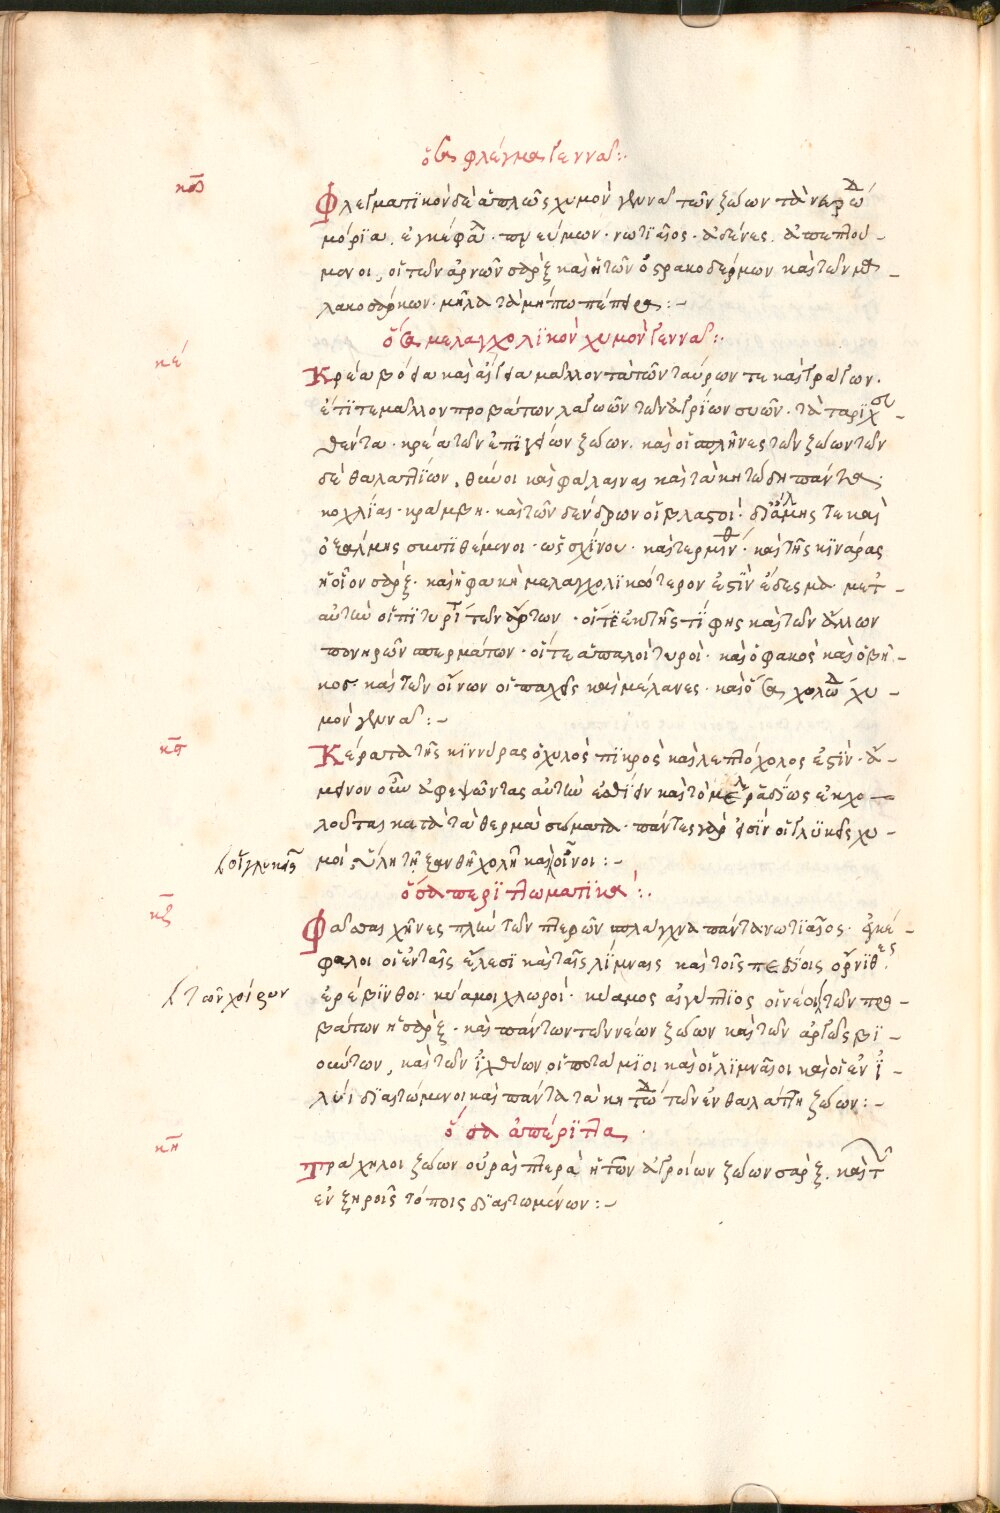 ὅσα φλέγμα γεννᾶ:·
κδ
Φλεγματϊκὸν δὲ ἁπλῶς χυμὸν γεννᾶ τῶν ζώων τὰ νευρώδ
μόρϊα. ἐγκέφαλ. πνεύμων. νωτϊαῖος. ἀδένες.
μενοι, οἵ τῶν ἀρνῶν σὰρξ καὶ ἡ τῶν ὀστρακοδέρμων καὶ τῶν μα-
λακοσάρκων. μῆλα τὰ μήπω πέπειρα:-
ὅσα μελαγχολϊκὸν χυμὸν γεννᾶ:·
κέ
Κρέα βόεια καὶ αἴγεια μᾶλλον τὰ τῶν ταύρων τε καὶ τράγων.
ἔτϊ τε μᾶλλον προβάτων λαγωῶν τῶν ἀγρίων συῶν. τὰ ταρϊχευ-
θέντα. κρέα τῶν ἐπϊγείων ζώων. καὶ οἱ σπλῆνες τῶν ζώων τῶν
δὲ θαλατίων, θύννοι καὶ φάλαιναι καὶ τὰ κητώδη πάντα.
κοχλίας. κράμβη. καὶ τῶν δένδρων οἱ βλαστοὶ. δι' ἅλμης τε καὶ
ὀξάλμης συντϊθέμενοι. ὡς σχίνου. καὶ τερμίνθ. καὶ τῆς κϊνάρας
ἡ οἷον σάρξ. καὶ ἡ φακῆ μελαγχολϊκώτερον ἐστϊν ἔδεσμα μετ'
αὐτὴν οἱ πϊτυρῖ τῶν ἄρτων. οἵ τε ἐκ τῆς τίφης καὶ τῶν ἄλλων
πονηρῶν σπερμάτων. οἵ τε ἁπαλοὶ τυροὶ. καὶ ὁ φακὸς καὶ ὁ βῆ-
κος. καὶ τῶν οἴνων οἱ παχεῖς καὶ μέλανες. καὶ ὅσα χολώδ χυ-
μὸν γεννᾶ:-
κς
Κέρατα τῆς κϊννύρας ὁ χυλὸς πϊκρὸς καὶ λεπτόχολος ἐστϊν. ἄ-
μεινον οὖν ἀφεψῶντας αὐτὴν ἐσθίειν καὶ τὸ μέλ ῥᾳδίως ἐκχο-
λοῦται κατὰ τὰ θερμὰ σώματα. πάντες γὰρ εἰσϊν οἱ γλϋκεῖς χυ-
μοὶ ὕλη τῆ ξανθῆ χολῆ καὶ οἶνοι:-
οἱ γλυκεῖς
ὅσα περϊττωματϊκὰ:·
κζ
Φάσσαι χῆνες πλὴν τῶν πτερῶν σπλάγχνα πάντα νωτϊαῖος. ἐγκέ-
φαλοι οἱ ἐν ταῖς ἕλεσϊ καὶ ταῖς λίμναις καὶ τοῖς πεδίοις ὄρνϊθες.
ἐρέβϊνθοι. κύαμοι χλωροὶ. κύαμος αἰγύπτϊος οἱ νέοι τῶν προ-
τῶν χοίρων
βάτων ἡ σὰρξ. καὶ πάντων τῶν νέων ζώων καὶ τῶν ἀργῶς βϊ-
ούντων, καὶ τῶν ἰχθύων οἱ ποτάμϊοι καὶ οἱ λϊμναῖοι καὶ οἱ ἐν ἰ-
λύϊ διαιτώμενοι καὶ πάντα τὰ κητώδ τῶν ἐν θαλάττη ζώων:-
ὅσα ἀπέρϊττα.
κη
Τράχηλοι ζώων οὐραὶ πτερὰ ἡ τῶν ἀγρίων ζώων σάρξ. καὶ τ
ἐν ξηροῖς τόποις διαιτωμένων:-